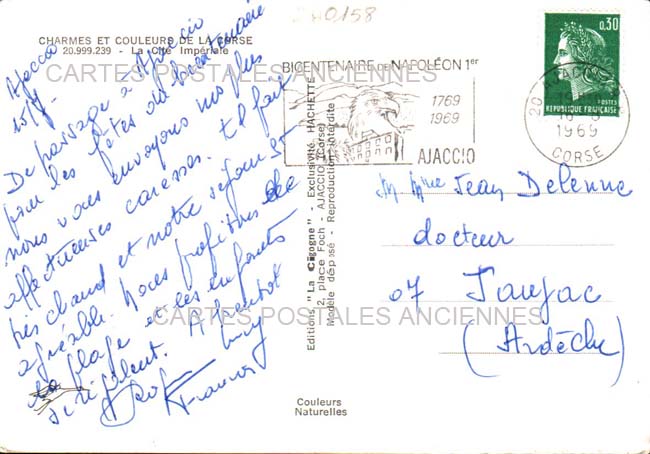 240158
CHARMES ET COULEURS DE LA CORSE
20.999.239 - La Cité Impériale
CARTES POSTALES ANCIENNES
Ajaccio
15/8
De passage à Ajaccio
pour les fêtes du bicentenaire
nous vous envoyons nos plus
affectueuses caresses. Il fait
très chaud et notre séjour est
agréable. Nous profitons de
la plage et les enfants
se régalent. A bientôt
BICENTENAIRE DE NAPOLÉON 1er
1769
1969
AJACCIO
0,30
POSTES
REPUBLIQUE FRANÇAISE
20 AJACCIO
1969
CORSE
Editions "La Cigogne" - Exclusivité HACHETTE
2, place Foch - AJACCIO (Corse)
Modèle déposé - Reproduction interdite
M Mme Jean Delenne
docteur
07 Jaujac
(Ardèche)
CARTES POSTALES ANCIENNES
Couleurs
Naturelles